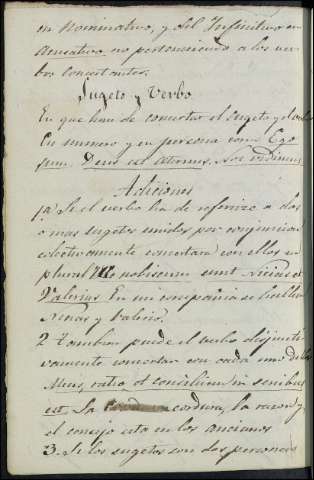 en Nominativo, y del Infinitivo en
Acusativo no perteneciendo a los ver
bos concertantes.
Sugeto y Verbo
En que han de concertar el Sugeto y el verbo
En numero y en persona como Ego
sum. Deus est æternus. Nos
Adiciones
1ª Si el verbo ha de referirse a dos
o mas sugetos unidos por conjuncion
colectivamente concertara con ellos en
plural nobiscum sunt Nicias et
Valerius. En mi compañia se hallan
Nicias y Valerio.
2 Tambien puede el verbo disjunti
vamente concertar con cada uno de ellos
Mens, ratio et consilium in senibus
est. La cordura, la razon y
el consejo esta en los ancianos
3. Si los sugetos son dos personas